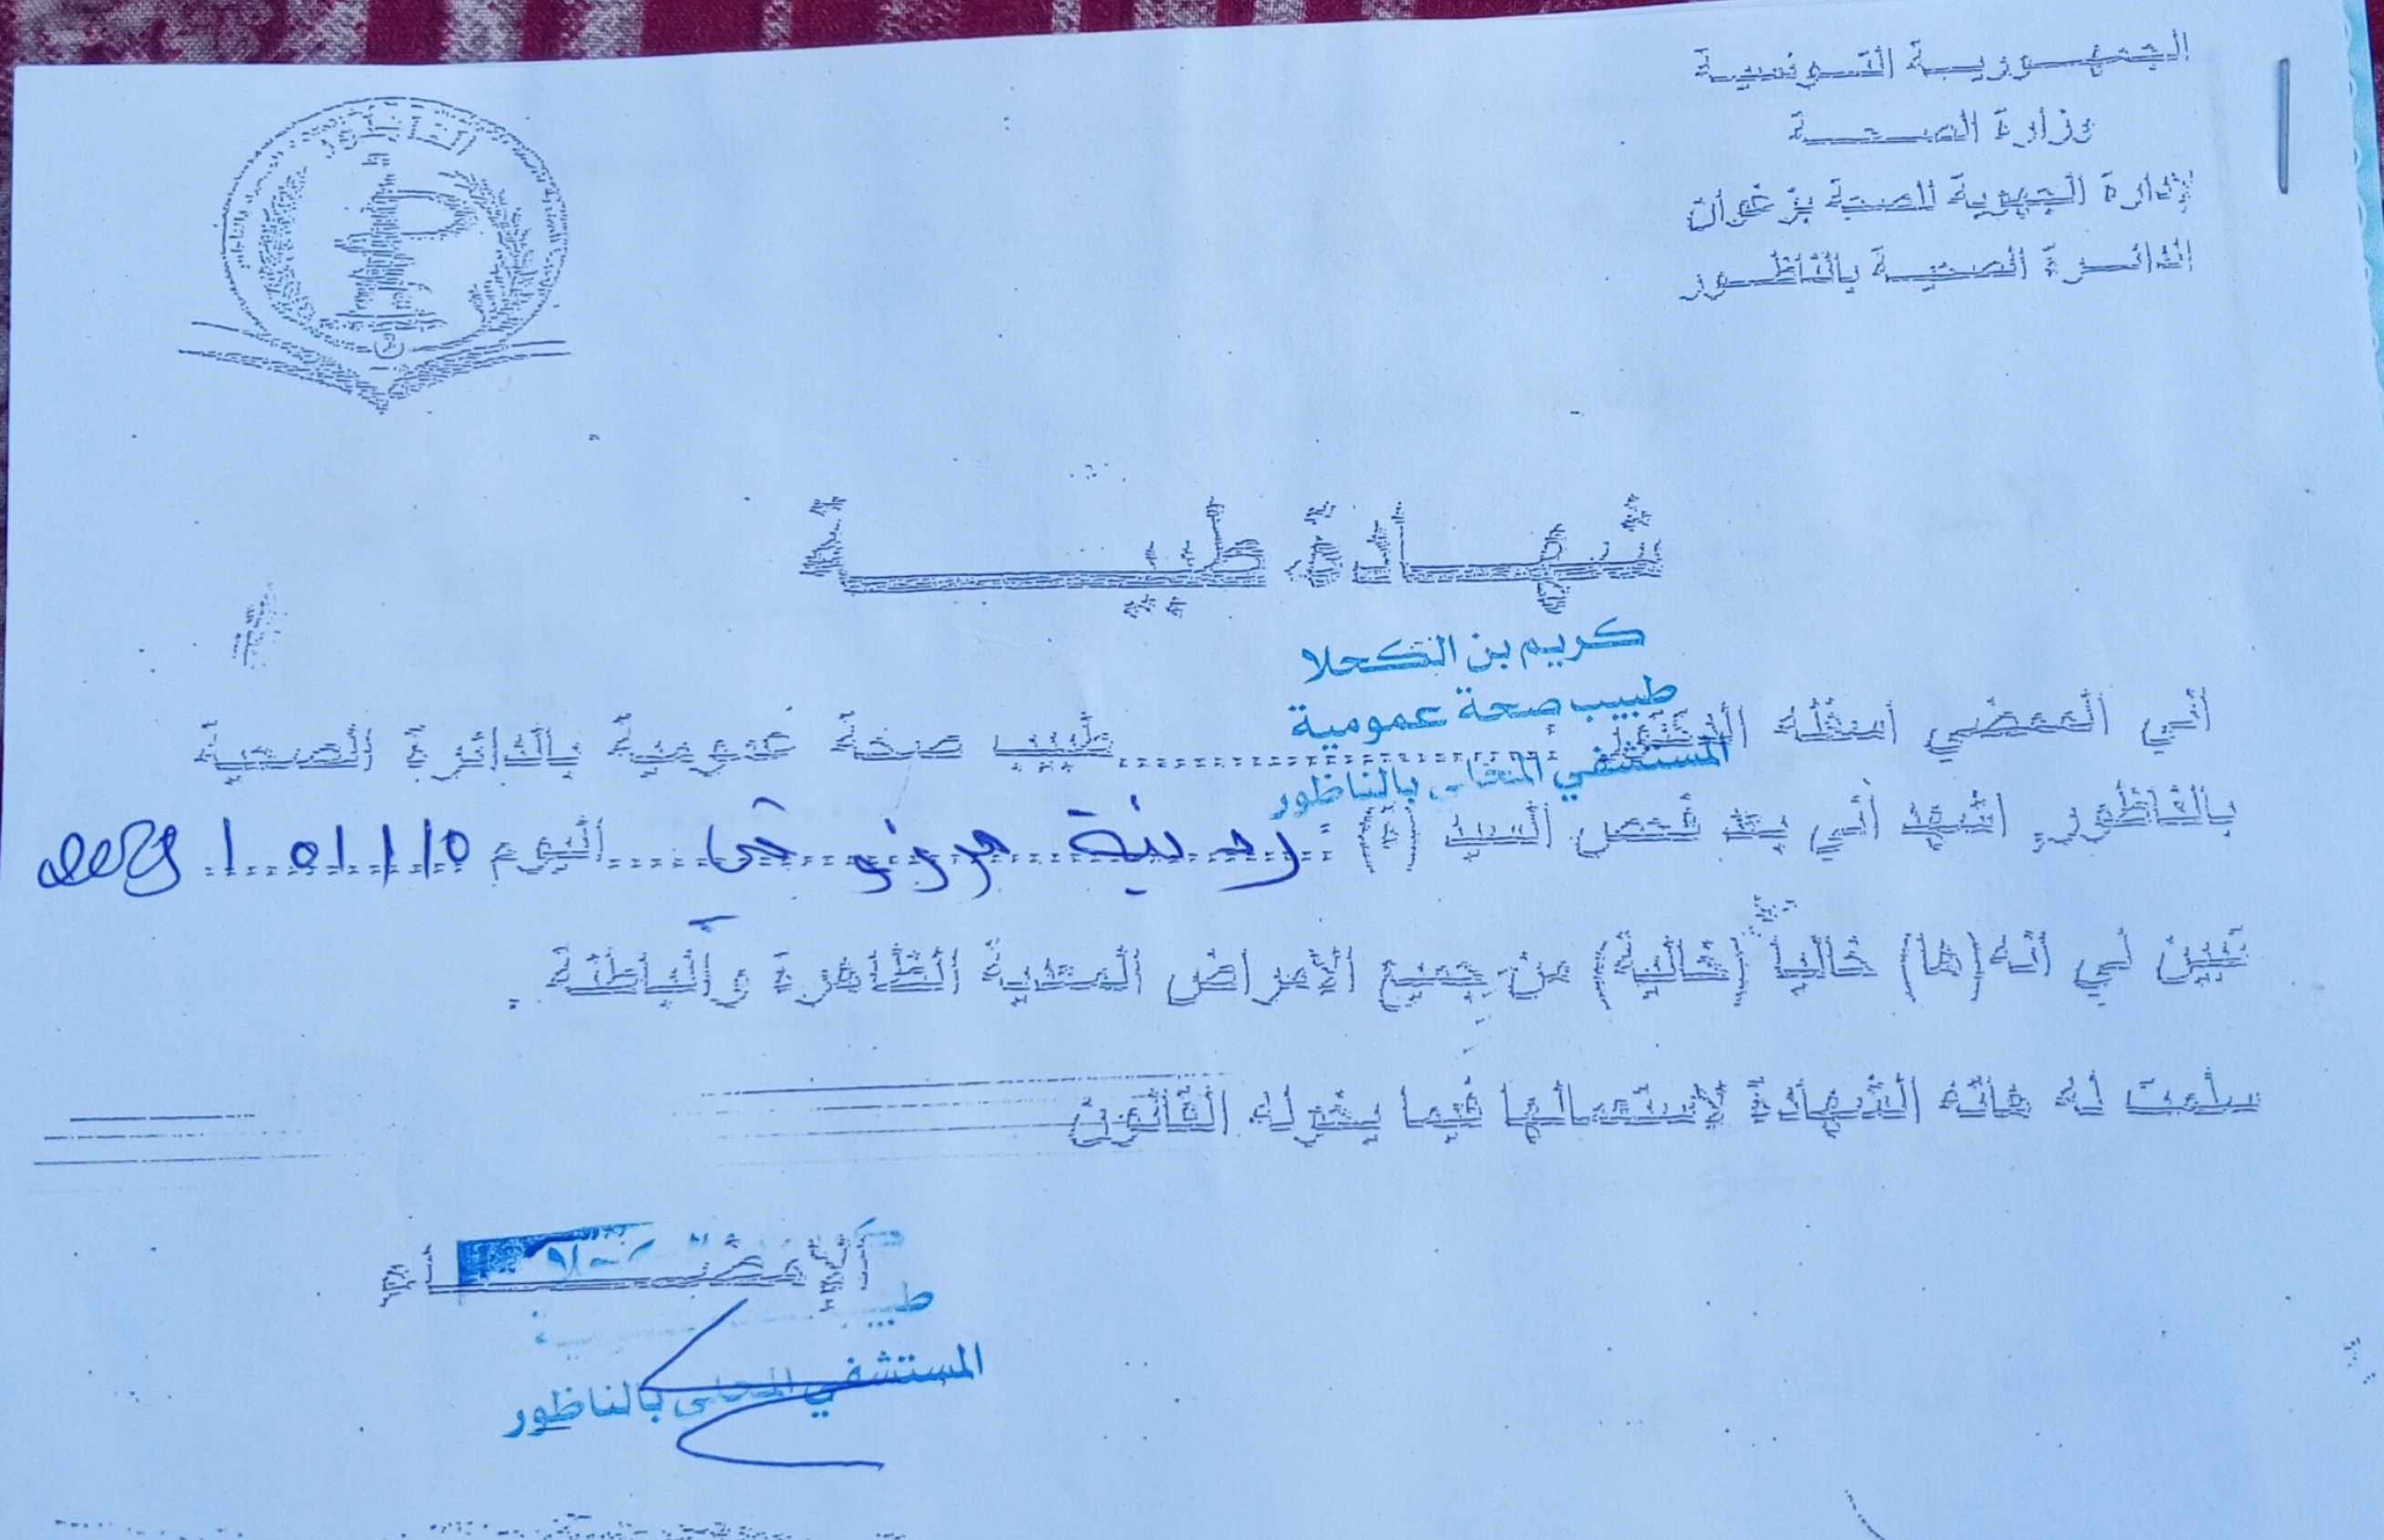 الجمهورية التونسية
وزارة الصحة
الإدارة الجهوية للصحة بزغوان
الدائرة الصحية بالناظور
الناظور
شهادة طبية
كريم بن الكحلا
طبيب صحة عمومية
المستشفى المحلي بالناظور
أني الممضي أسفله الدكتور : طبيب صحة عمومية بالدائرة الصحية
بالناظور، اشهد أني بعد فحص السيد (ة) : اليوم 10 / 01 /
تبين لي أنه (ها) خاليا (خالية) من جميع الأمراض المعدية الظاهرة والباطنة .
سلمت له هاته الشهادة لاستعمالها فيما يخوله القانون
الإمضاء
طبيب
المستشفى المحلي بالناظور